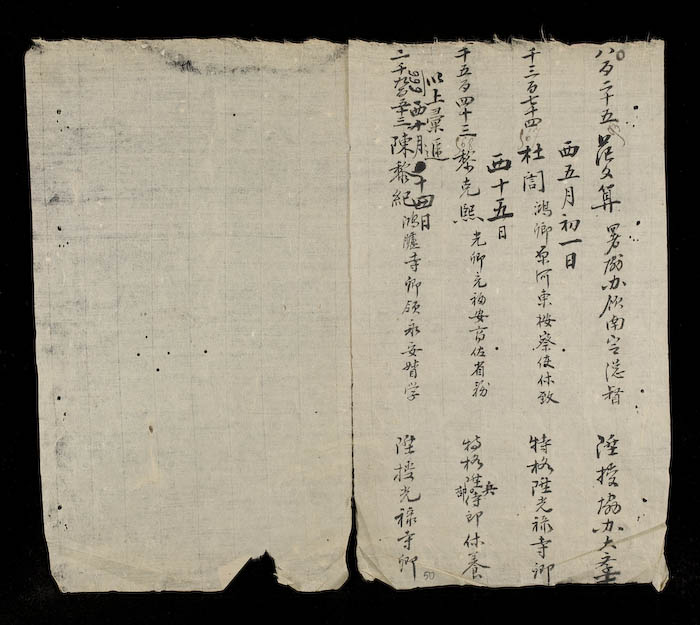 八百二十五 范文算 署協办領南定總督 陞授協办大學士
酉五月初一日
千三百七十四 杜 鴻卿原河東按察使休致 特格陞光禄寺卿
酉十五日
千五百四十三 黎克熙 光卿充福安 佐省務 特格陞兵部侍郎休養
以上彙進
酉十月十四日
二千 百 十三 陳黎紀 鴻臚寺卿領永安督学 陞授光禄寺卿
50